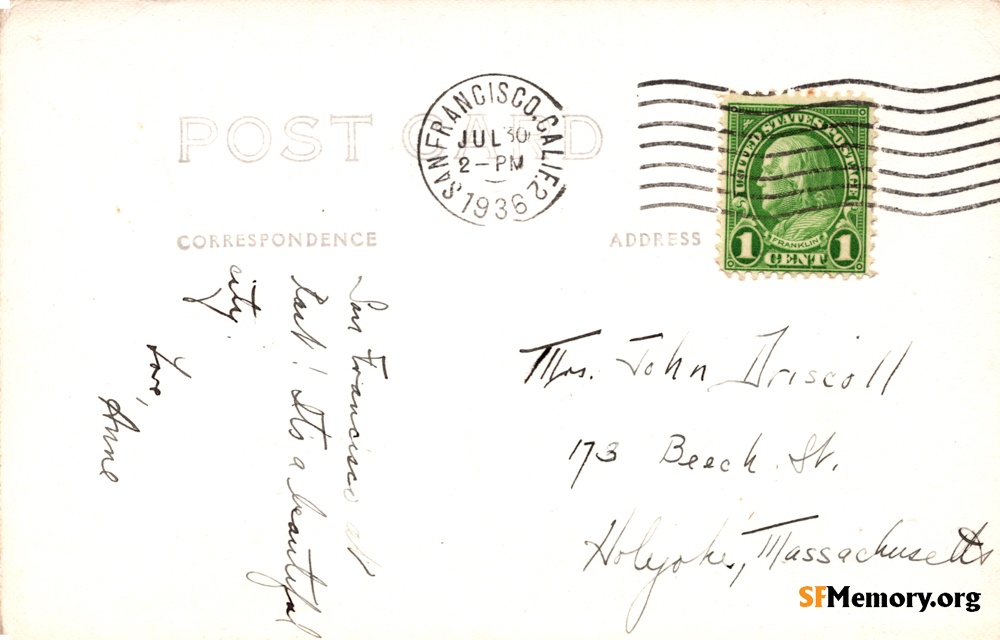 POST CARD
SAN FRANCISCO, CALIF. 2
JUL 30
2-PM
1936
UNITED STATES POSTAGE
FRANKLIN
1 CENT 1
CORRESPONDENCE
ADDRESS
San Francisco at
last! It's a beautiful
city.
Love,
Anne
Mrs. John Driscoll
173 Beech St.
Holyoke, Massachusetts
SFMemory.org